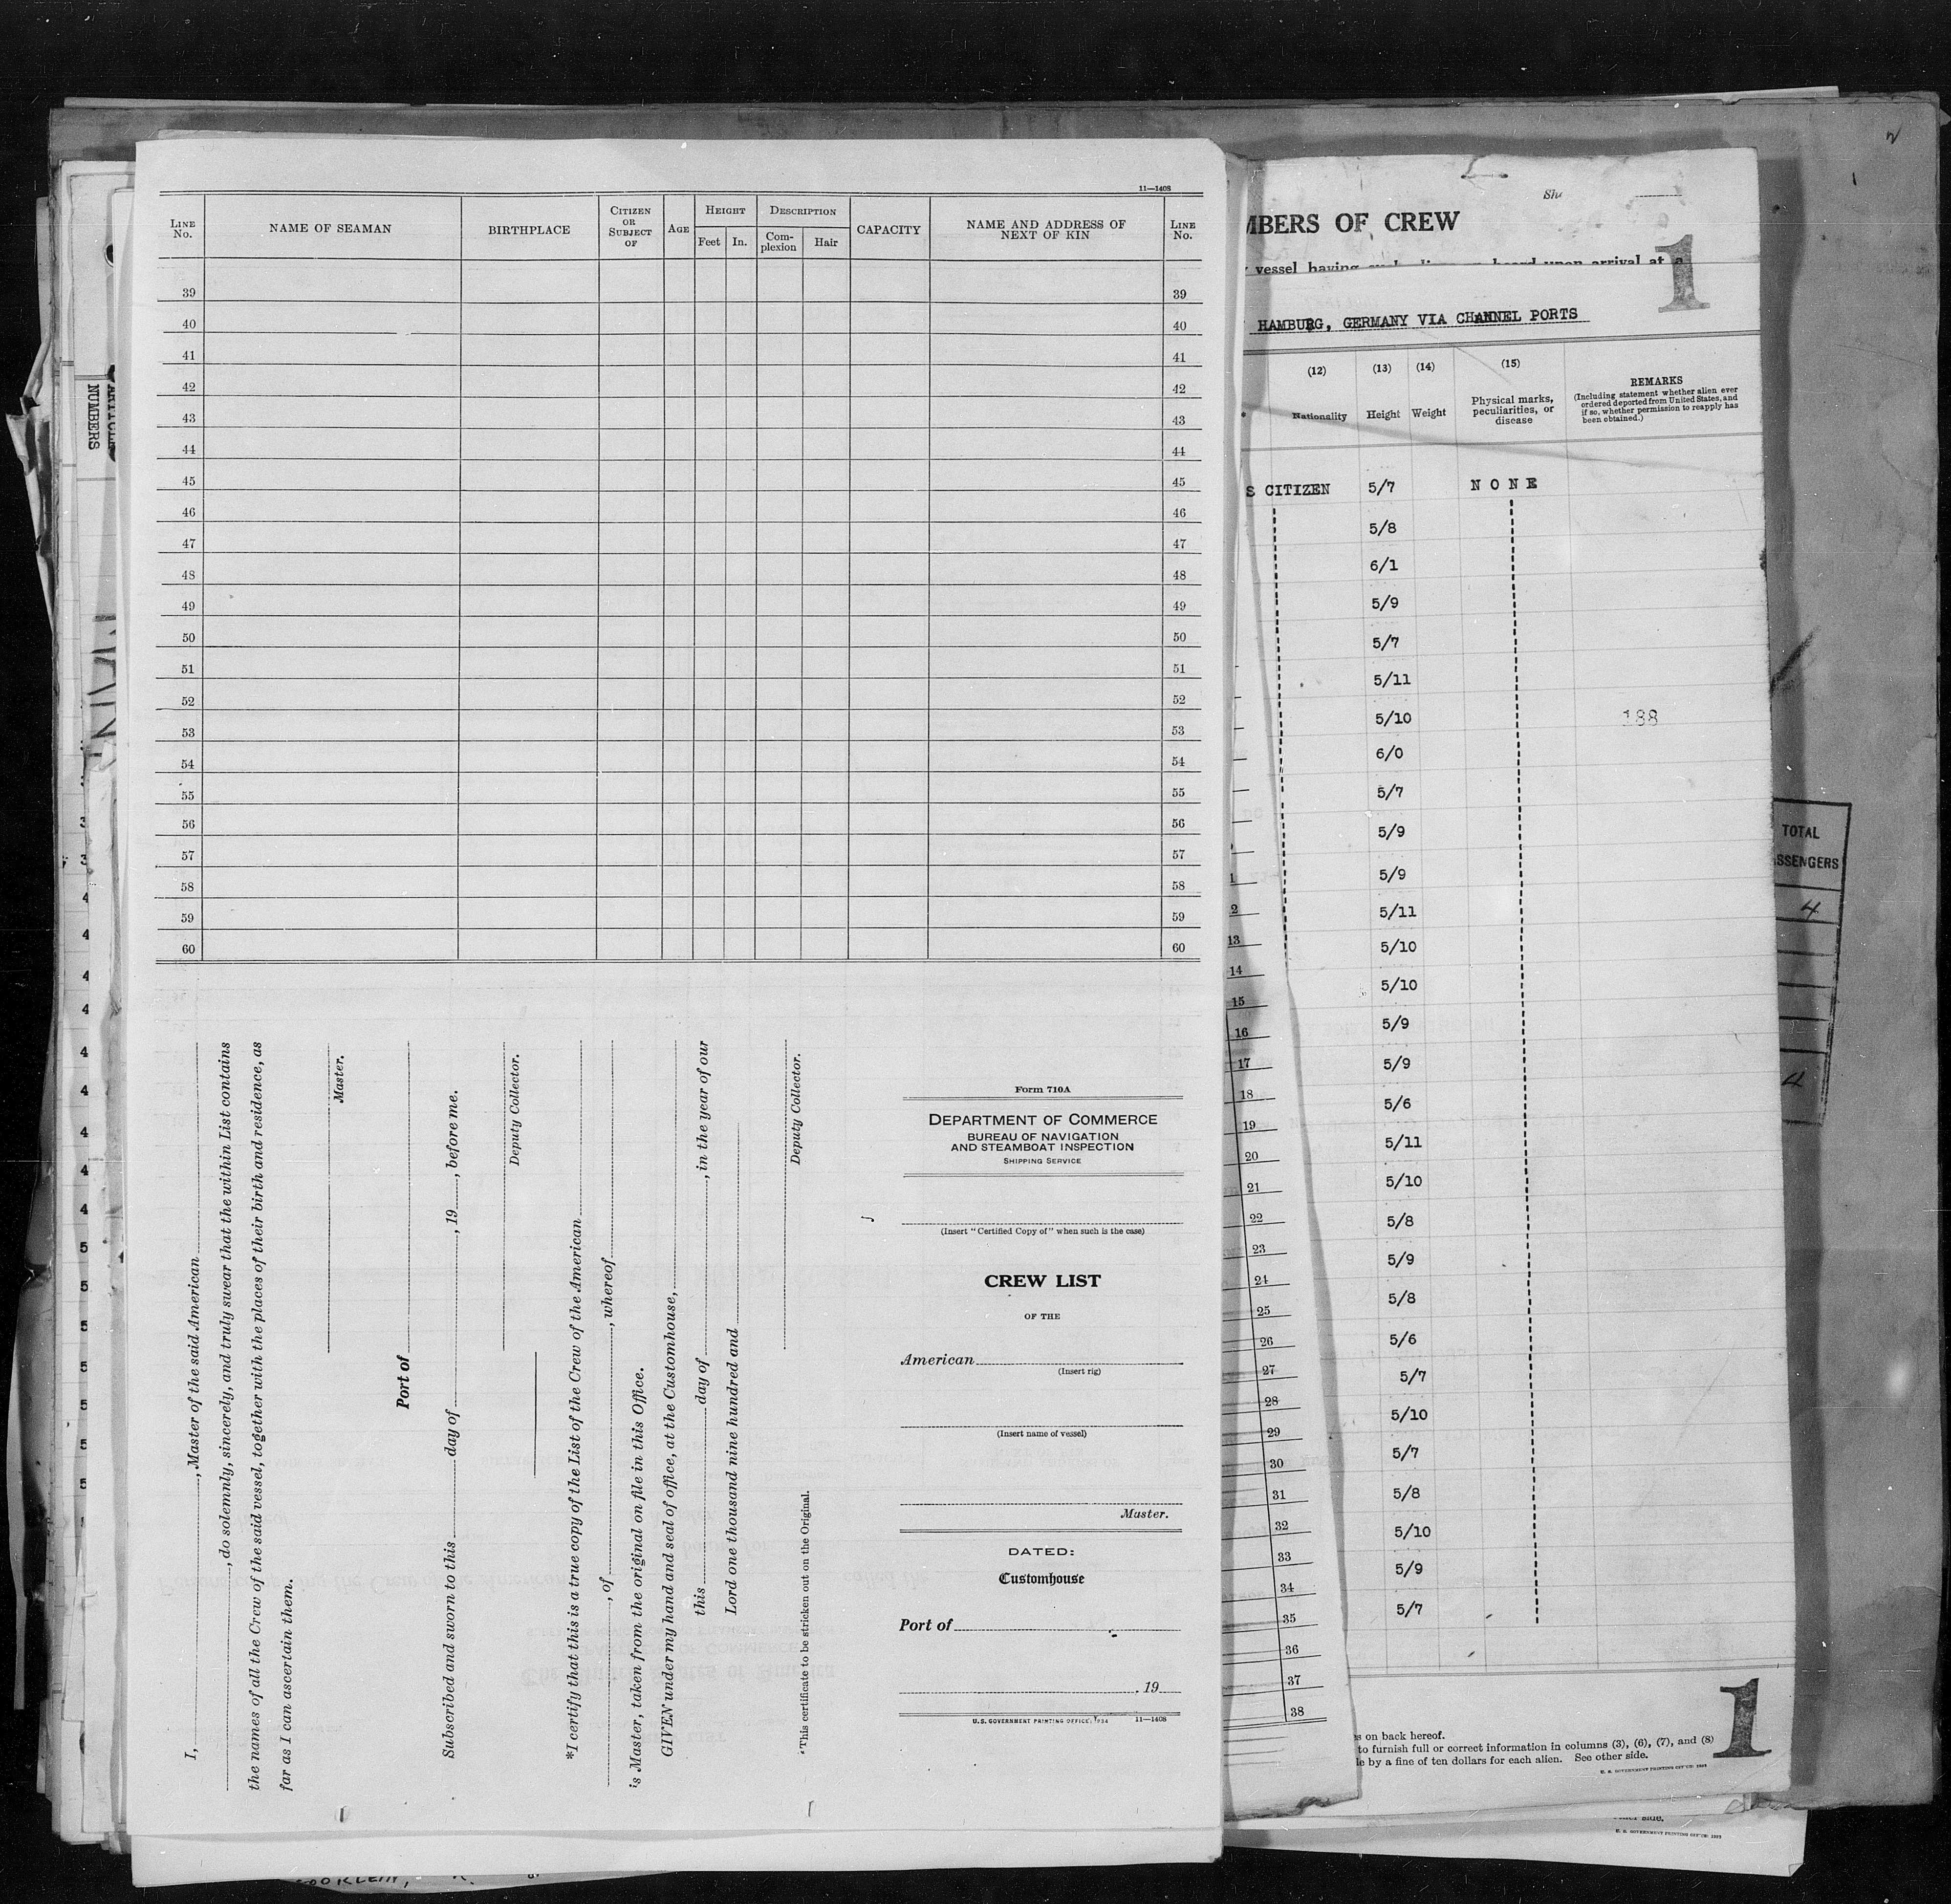 11—1408
LINE No. NAME OF SEAMAN BIRTHPLACE CITIZEN OR SUBJECT OF AGE HEIGHT Feet In. DESCRIPTION Complexion Hair CAPACITY NAME AND ADDRESS OF NEXT OF KIN LINE No.
39 39
40 40
41 41
42 42
43 43
44 44
45 45
46 46
47 47
48 48
49 49
50 50
51 51
52 52
53 53
54 54
55 55
56 56
57 57
58 58
59 59
60 60
I, , Master of the said American
, do solemnly, sincerely, and truly swear that the within List contains
the names of all the Crew of the said vessel, together with the places of their birth and residence, as
far as I can ascertain them.
Master.
Port of
Subscribed and sworn to this day of , 19 , before me.
Deputy Collector.
*I certify that this is a true copy of the List of the Crew of the American
, of , whereof
is Master, taken from the original on file in this Office.
GIVEN under my hand and seal of office, at the Customhouse,
this day of , in the year of our
Lord one thousand nine hundred and
Deputy Collector.
*This certificate to be stricken out on the Original.
Form 710A
DEPARTMENT OF COMMERCE
BUREAU OF NAVIGATION
AND STEAMBOAT INSPECTION
SHIPPING SERVICE
(Insert "Certified Copy of" when such is the case)
CREW LIST
OF THE
American
(Insert rig)
(Insert name of vessel)
Master.
DATED:
Customhouse
Port of
, 19
U.S. GOVERNMENT PRINTING OFFICE: 1934 11—1408
MBERS OF CREW
1
vessel having upon arrival at a
HAMBURG, GERMANY VIA CHANNEL PORTS
(12) (13) (14) (15)
Nationality Height Weight Physical marks, peculiarities, or disease
REMARKS
(Including statement whether alien ever
ordered deported from United States, and
if so, whether permission to reapply has
been obtained.)
S CITIZEN 5/7 NONE
5/8
6/1
5/9
5/7
5/11
5/10 188
6/0
5/7
5/9
5/9
5/11
5/10
5/10
5/9
5/9
5/6
5/11
5/10
5/8
5/9
5/8
5/6
5/7
5/10
5/7
5/8
5/10
5/9
5/7
1
2
13
14
15
16
17
18
19
20
21
22
23
24
25
26
27
28
29
30
31
32
33
34
35
36
37
38
s on back hereof.
to furnish full or correct information in columns (3), (6), (7), and (8)
le by a fine of ten dollars for each alien. See other side.
U. S. GOVERNMENT PRINTING OFFICE:
1
TOTAL
SSENGERS
4
4
NUMBERS